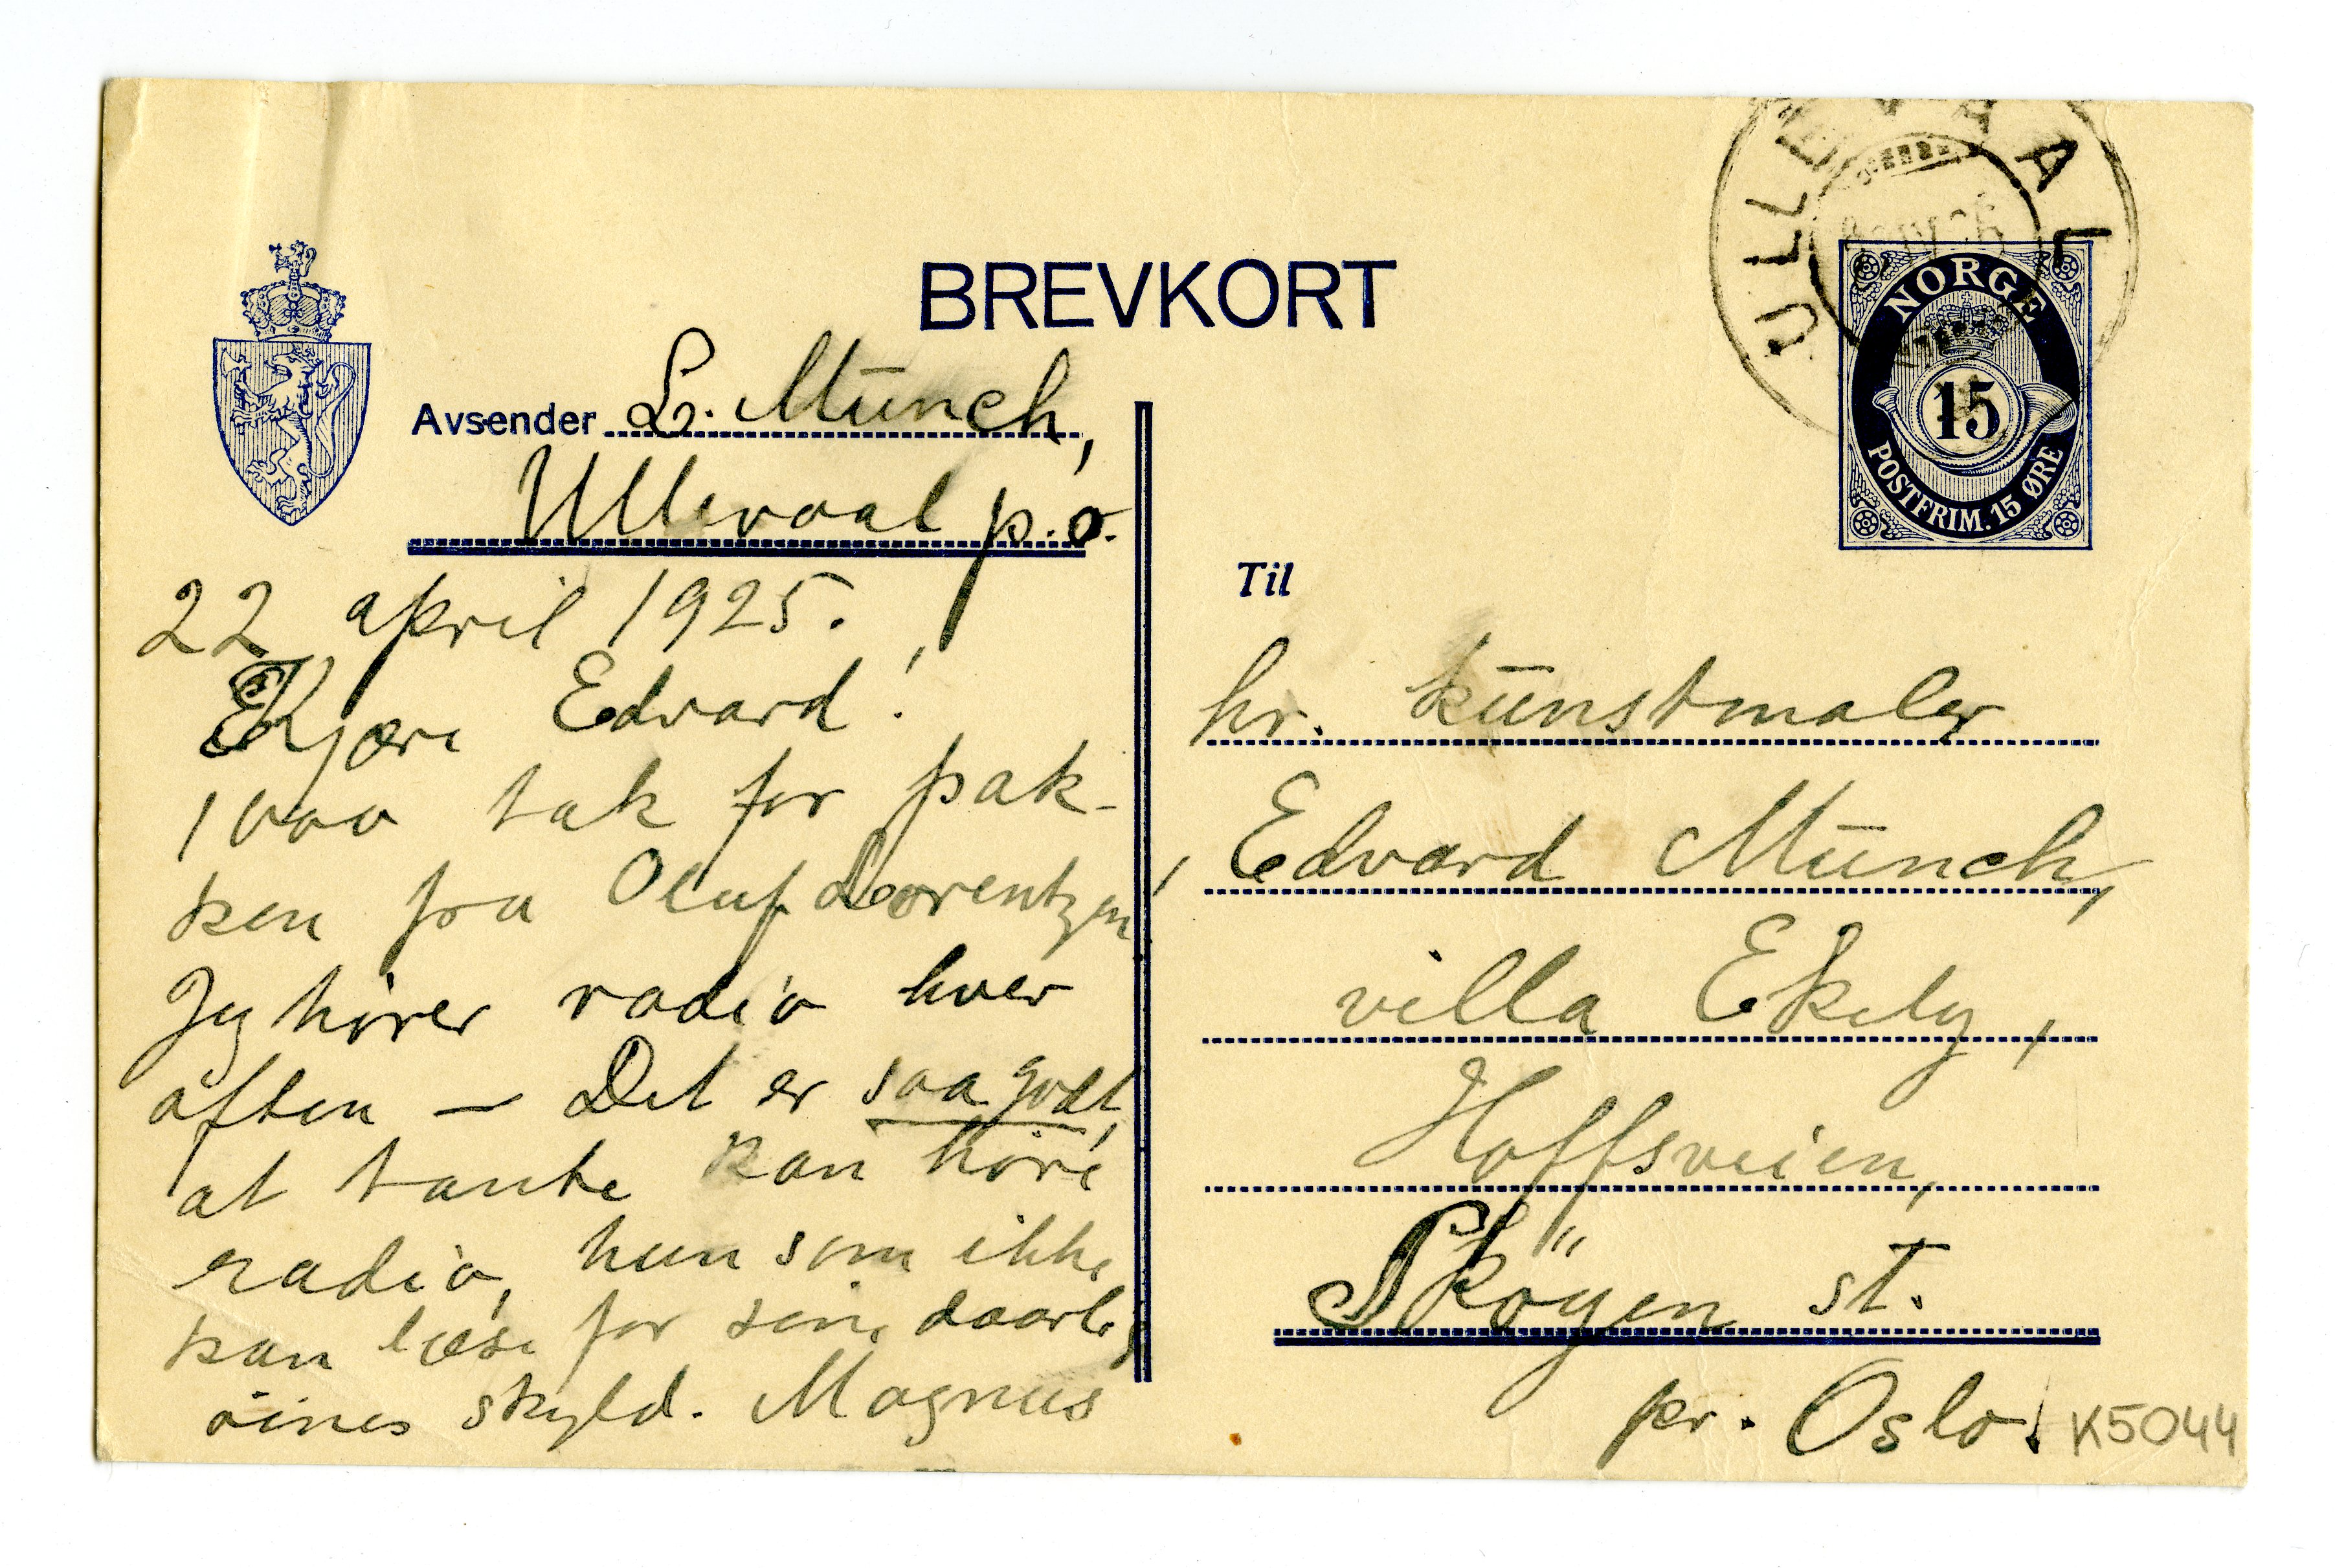 BREVKORT
ULLEVAAL
NORGE
15
POSTFRIM. 15 ØRE
Avsender L. Munch,
Ullevaal p.o.
22 april 1925.
Kjære Edvard!
1000 tak for pak-
ken fra Oluf Lorentzen!
Jeg hører radio hver
aften — Det er saa godt,
at tante kan høre
radio, hun som ikke
kan læse for sine daarlig
øines skyld. Magnus
Til
hr. kunstmaler
Edvard Munch,
villa Ekely,
Hoffsveien,
Skøyen st.
pr. Oslo.
K5044